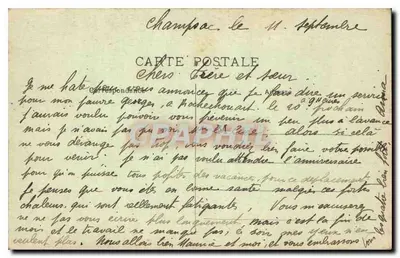 Champsac le 11 septembre
CARTE POSTALE
Chers Frère et sœur
Je me hâte pour vous annoncer que je fais dire un service
pour mon pauvre Georges, à Rochechouart le 20 prochain
j'aurais voulu pouvoir vous prévenir un peu plus à l'avance
mais je n'avais pas pu alors si cela
ne vous dérange pas trop vous voudrez bien faire votre possible
pour venir! je n'ai pas voulu attendre l'anniversaire
pour qu'on puisse tous profiter des vacances, pour ce déplacement
Je penses que vous êtes en bonne santé malgrés ces fortes
chaleurs, qui sont tellement fatigantes. Vous m'excuserez
ne ne pas vous écrire plus longuement, mais c'est la fin de
mois et le travail ne manque pas; le soir mes yeux n'en
veulent plus. Nous allons bien Maman et moi; et vous embrassons